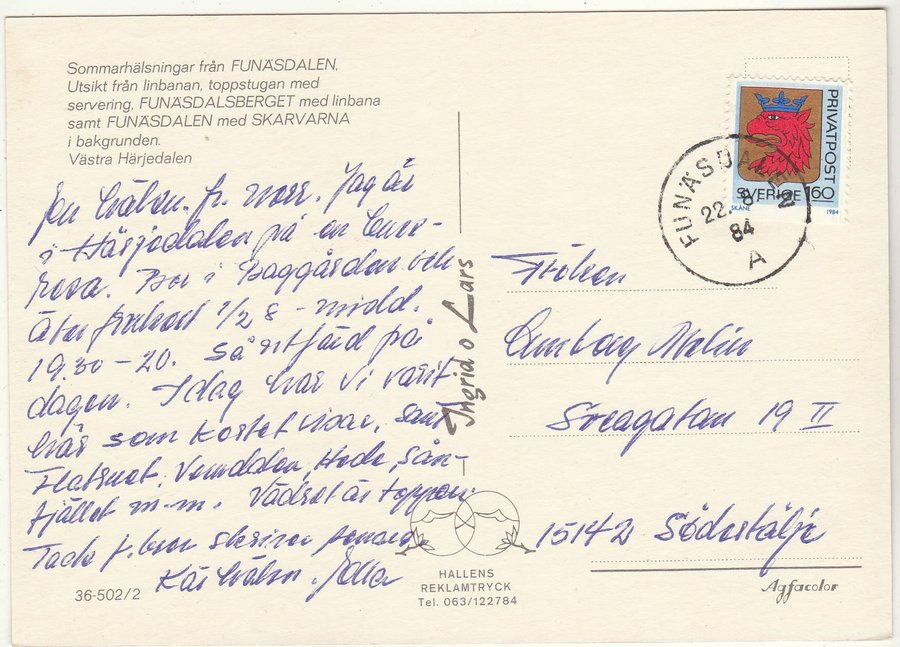 Sommarhälsningar från FUNÄSDALEN.
Utsikt från linbanan, toppstugan med
servering, FUNÄSDALSBERGET med linbana
samt FUNÄSDALEN med SKARVARNA
i bakgrunden.
Västra Härjedalen
En hälsn. fr. norr. Jag är
i Härjedalen på en buss-
resa. Bor i Baggården och
äter frukost 1/2 8 - midd.
19,30-20. Så utfärd på
dagen. Idag har vi varit
här som kortet visar, samt
Flatruet, Vemdalen, Hede, Sån-
fjället m.m. Vädret är toppen.
Tack f. brev skriver
Kär hälsn.
Ingrid o Lars
PRIVATPOST
SVERIGE 160
SKÅNE 1984
FUNÄSDALEN
22. 8
84
A
Fröken
Malin
Sveagatan 19 II
15142 Södertälje
36-502/2
HALLENS
REKLAMTRYCK
Tel. 063/122784
Agfacolor